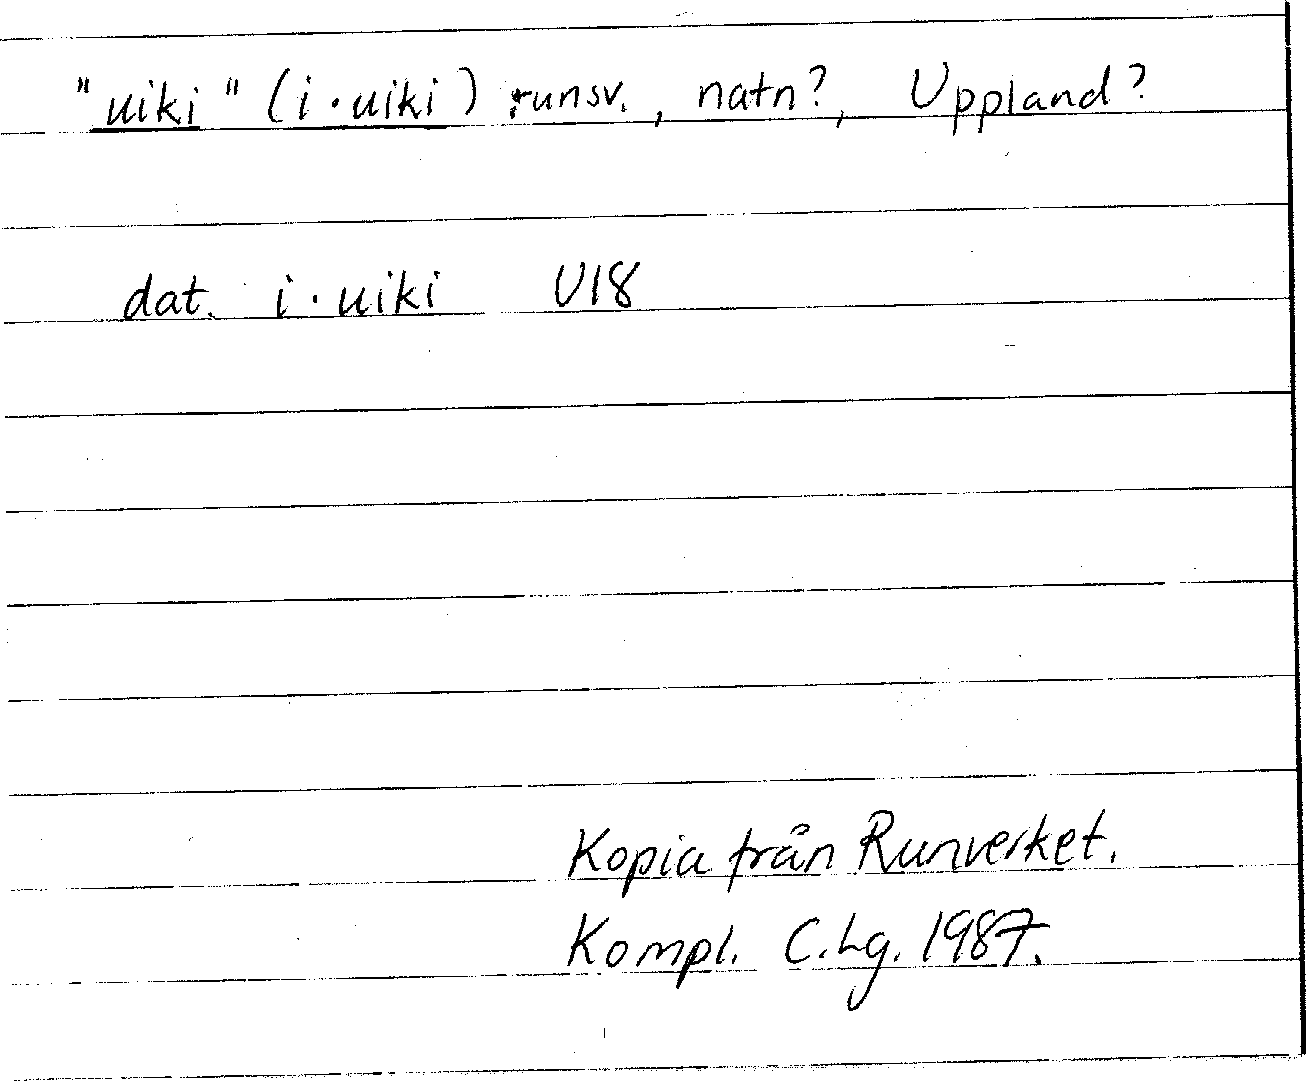 "uiki" (i · uiki) runsv., natn?, Uppland?
dat. i · uiki U18
Kopia från Runverket.
Kompl. C.Lg. 1987.